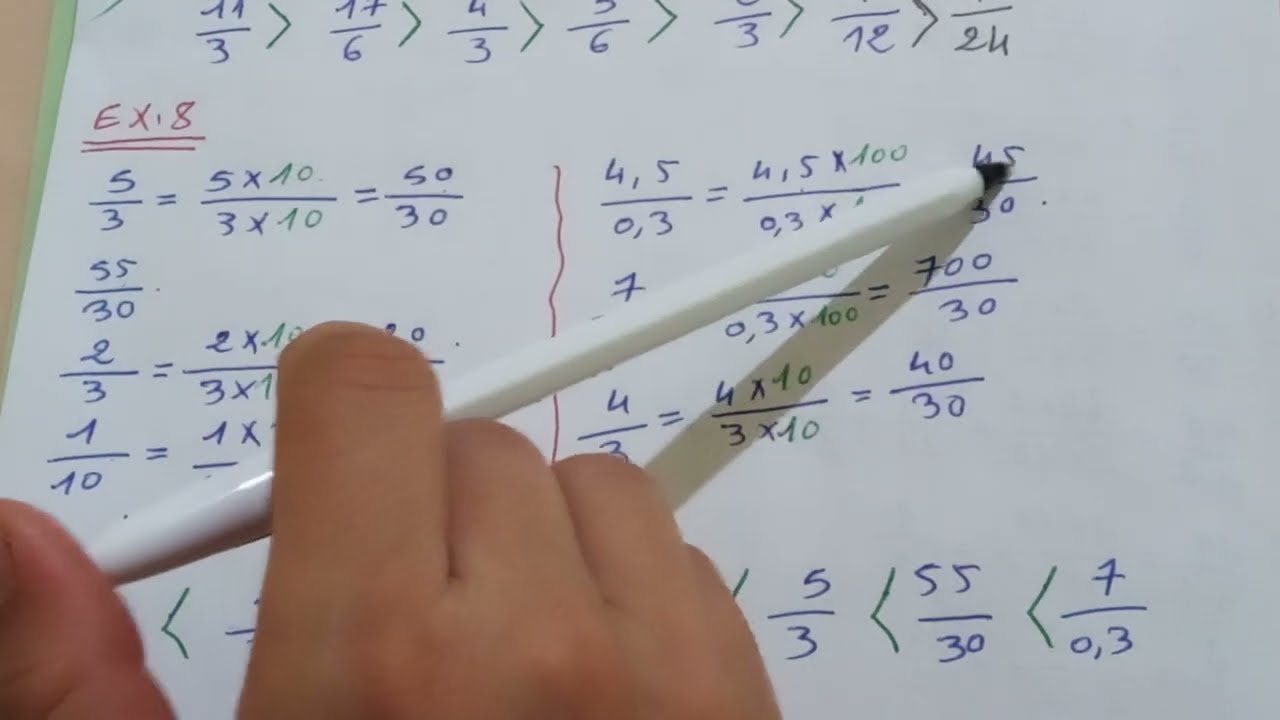 11/3 > 17/6 > 4/3 > 5/6 > /3 > /12 > /24
EX.8
5/3 = 5 x 10/3 x 10 = 50/30
55/30
2/3 = 2 x 10/3 x 1
1/10 = 1 x
4,5/0,3 = 4,5 x 100/0,3 x 45/30
7 0,3 x 100 = 700/30
4/3 = 4 x 10/3 x 10 = 40/30
< < 5/3 < 55/30 < 7/0,3